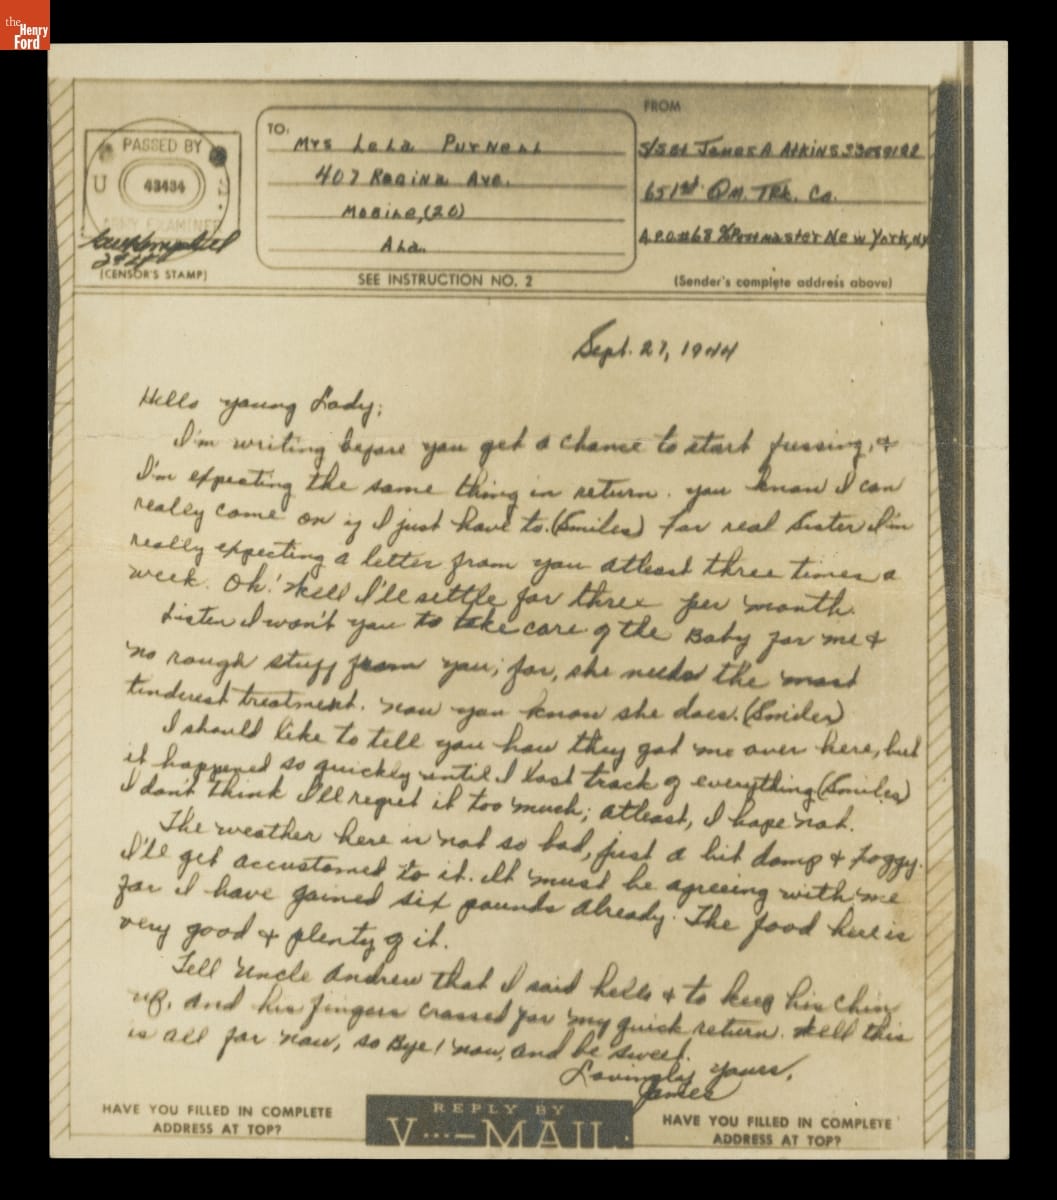 the
Henry
Ford
PASSED BY
U S.
43434
ARMY EXAMINER
(CENSOR'S STAMP)
TO:
Mrs LeLa PurNeLL
407 Regina Ave.
Mobile, (20)
Ala.
SEE INSTRUCTION NO. 2
FROM
S/Sgt James A Atkins
651st QM. TRK. Co.
A.P.O. #68 % Postmaster New York, NY
(Sender's complete address above)
Sept. 27, 1944
Hello young Lady;
I'm writing before you get a chance to start fussing, &
I'm expecting the same thing in return. you know I can
really come on if I just have to. (Smiles) For real Sister I'm
really expecting a letter from you atleast three times a
week. Oh! Well I'll settle for three per month.
Sister I won't you to take care of the Baby for me &
no rough stuff from you; for, she needs the most
tinderest treatment. Now you know she does. (Smiles)
I should like to tell you how they got me over here, but
it happened so quickly until I lost track of everything (Smiles)
I don't think I'll regret it too much; atleast, I hope not.
The weather here is not so bad, just a bit damp & foggy.
I'll get accustomed to it. It must be agreeing with me
for I have gained six pounds already. The food here is
very good & plenty of it.
Tell Uncle Andrew that I said hello & to keep his chin
up, and his fingers crossed for my quick return. Well this
is all for now, so Bye! now, and be sweet.
Lovingly Yours,
James
HAVE YOU FILLED IN COMPLETE
ADDRESS AT TOP?
REPLY BY
V···—MAIL
HAVE YOU FILLED IN COMPLETE
ADDRESS AT TOP?